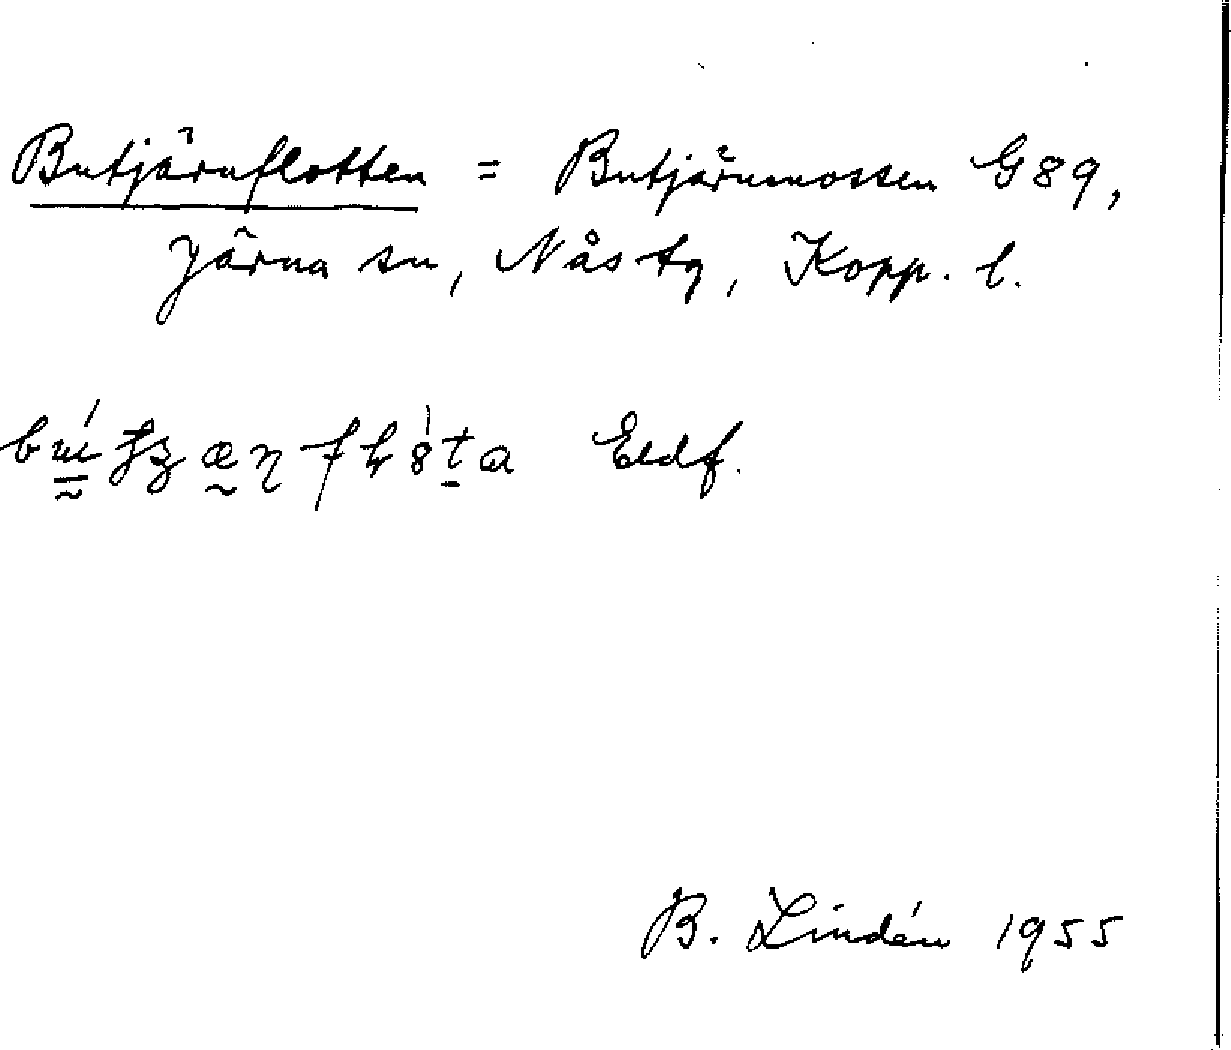 Butjärnflotten = Butjärnmossen G89,
Järna sn, Nås tg, Kopp. l.
Eldf.
B. Lindén 1955